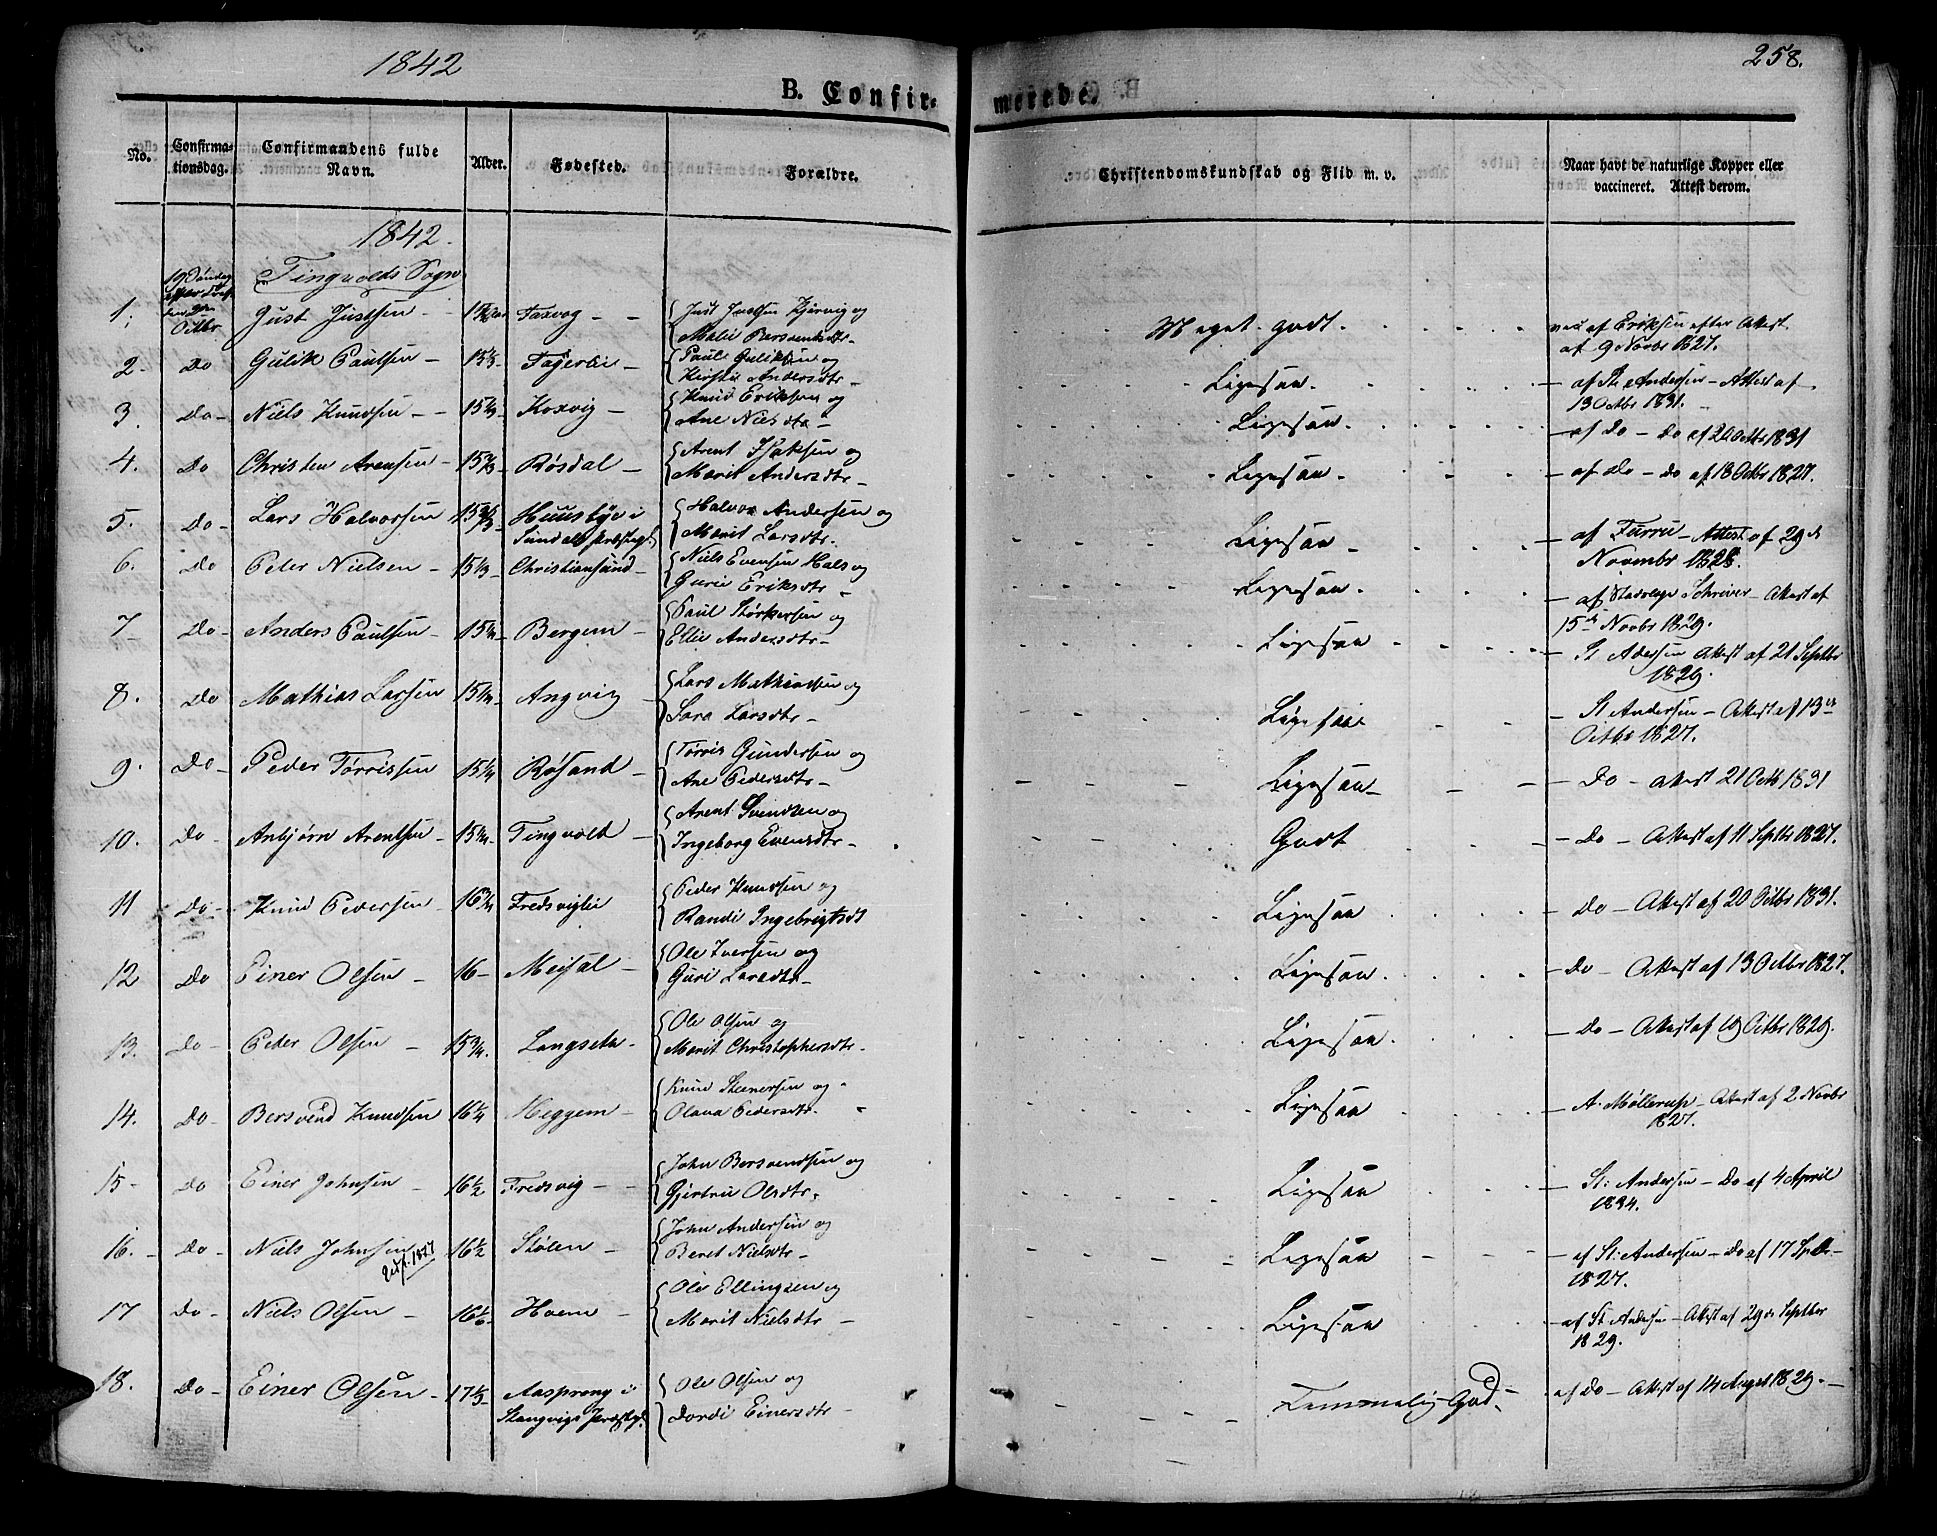 1842
258.
B. Confir-
merede.
No.
Confirma-
tionsdag.
Confirmandens fulde
Navn.
Alder.
Fødested.
Forældre.
Christendomskundskab og Flid m. v.
Naar havt de naturlige Kopper eller
vaccineret. Attest derom.
1842.
Tingvolds Sogn
19 Søndag
efter
Octbr
1. Just Justsen - Faxvog - - Just Justsen Kjørvig og
Malie
Meget godt. af Eriksen efter Attest
af 9 Novbr 1827.
2. Do Gulik Paulsen - 15 1/3 Fajerlie - Paul Guliksen og
Kirstie Andersdtr -
Ligesaa. - af St: Andersen - Attest af
13 Octbr 1831.
3. Do - Niels Knudsen - - Koxvig - Knud Eriksen og
Ane Nielsdtr -
Ligesaa. - af Do - Do af 20 Octbr 1831
4. Do Christen Arentsen - Røsdal - Arent Isaksen og
Marit Andersdtr -
Ligesaa - af Do - Do af 18 Octbr 1827.
5. Do - Lars Halvorsen Huusbye i
Sundals Præstegj.
Halvor Andersen og
Marit Larsdtr.
Ligesaa - af Furru - Attest af 29 d
Novembr 1828.
6. Do Peter Nielsen - 15 1/3 Christiansund - Niels Evensen Hals og
Guri Eriksdtr -
Ligesaa - af Schreiver - Attest af
15 de Novbr 1829.
7 Do - Anders Paulsen - Bergem - Paul Størkersen og
Ellie Andersdtr -
Ligesaa St Andersen Attest af 21 Septbr
1829.
8. Do Mathias Larsen 15 1/4 Angvig - Lars Mathiassen og
Sara Larsdtr -
Ligesaa - St Andersen - Attest af 13 de
Octbr 1827.
9. Do - Peder Tørrissen 15 1/4 Røsand - Tørris Gundersen og
Ane Pedersdtr -
Ligesaa - - Do - Attest 21 Octb 1831
10. Do - Anbjørn Arentsen - 15 3/4 - Tingvold - Arent Svendsen og
Ingeborg Evensdtr -
Godt - Do - Attest af 11 Septbr 1827.
11 Do - Knud Pedersen - Fredsviglie Peder Knudsen og
Randi Ingebrigtsdt
Ligesaa - Do - Attest af 20 Octbr 1831.
12 Do Einer Olsen - 16 - Meisal - Ole Iversen og
Guri Larsdtr -
Ligesaa - Do - Attest af 13 Octbr 1827.
13. Do - Peder Olsen - 15 3/4. Langseth - Ole Olsen og
Marit Christophersdtr -
Ligesaa - Do - Attest af 19 Octbr 1829.
14. Do - Bersvend Knudsen 16 1/4 Heggem - Knud Steenersen og
Olava Pedersdtr.
Ligesaa - A. Møllerup - Attest af 2 Novbr
1827.
15 - Do Einer Johnsen - 16 1/2 Fredsvig - John Bersvendsen og
Gjertrue Olsdtr.
Ligesaa - St: Andersen - Do af 4 April
1834.
16. - Do - Niels Johnsen 16 1/2 Stølen - John Andersen og
Beret Nielsdtr -
Ligesaa - af St: Andersen - Do af 17 Sptbr -
1827.
17 Do - Niels Olsen - 16 1/6 - Hoem - Ole Ellingsen og
Marit Nielsdtr -
Ligesaa - af St Andersen - Attest af 29 de Septbr
1829.
18. Do - Einer Olsen - 17 1/3 - Aasprong i
Stangvigs Præstegj.
Ole Olsen og
Dordi Einersdtr -
Temmelig God - af Do - Attest af 14 Augst 1829. -